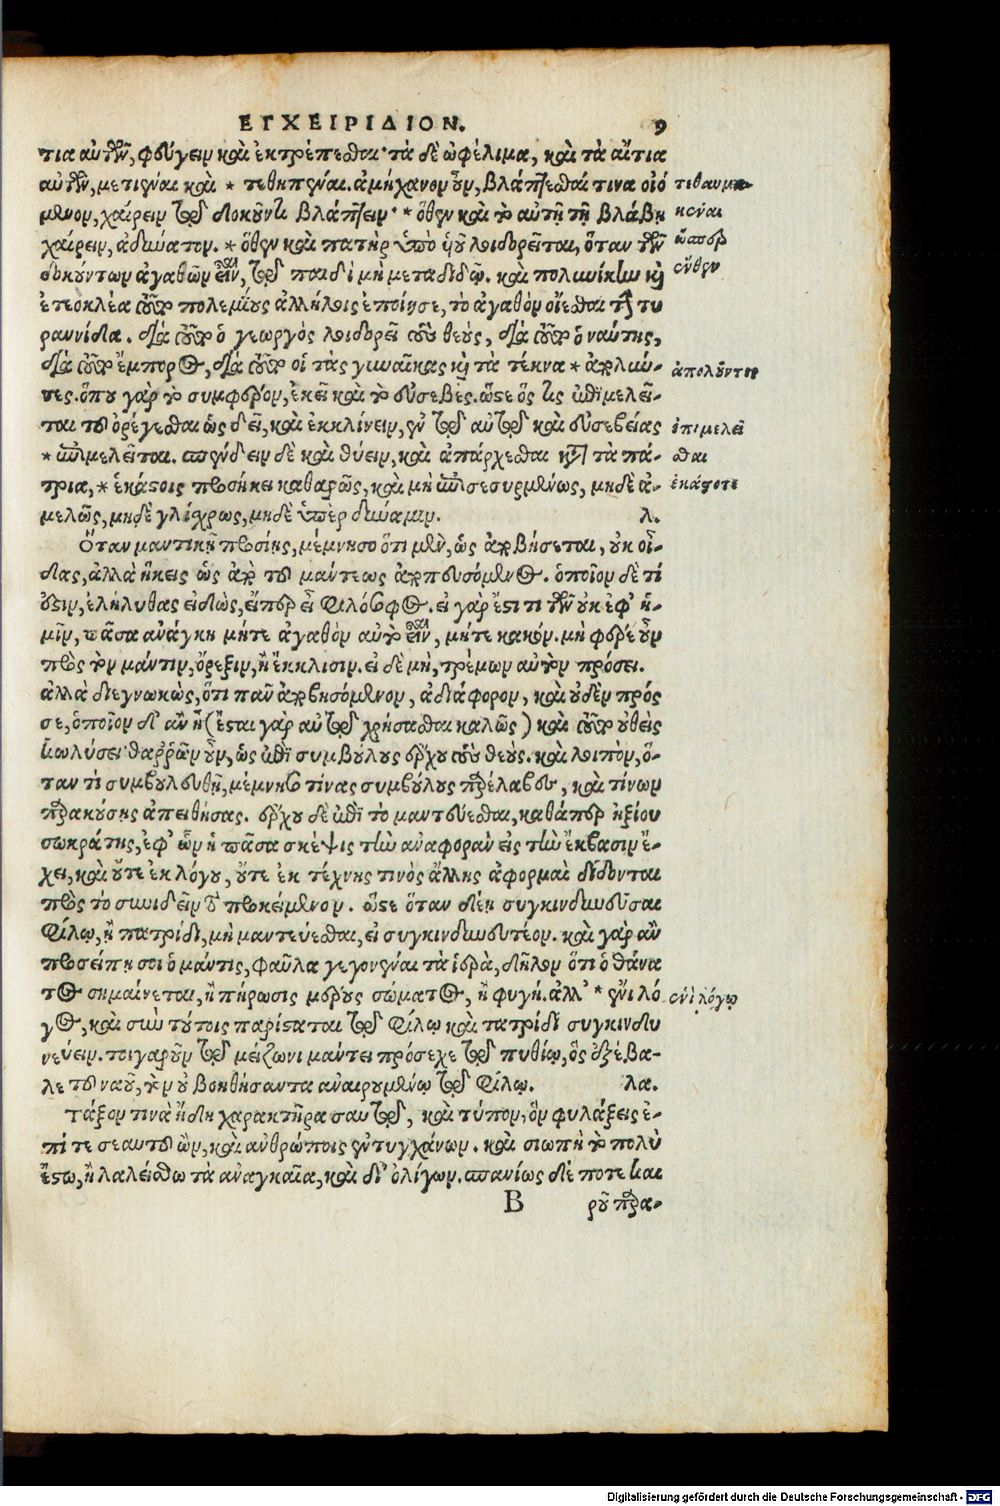 ΕΓΧΕΙΡΙΔΙΟΝ. 9
τια αὐτῶν, φεύγειν καὶ ἐκτρέπεσθαι· τὰ δὲ ὠφέλιμα, καὶ τὰ αἴτια
αὐτῶν, μετιέναι καὶ * τεθηπέναι. ἀμήχανον οὖν, βλάπτεσθαί τινα οἰό
μενον, χαίρειν τῷ δοκοῦντι βλάπτειν· * ὅθεν καὶ τὸ αὐτῇ τῇ βλάβῃ
χαίρειν, ἀδύνατον. * ὅθεν καὶ πατὴρ ὑπὸ ὑοῦ λοιδορεῖται, ὅταν τῶν
δοκούντων ἀγαθῶν εἶναι, τῷ παιδὶ μὴ μεταδιδῷ. καὶ πολυνίκην κὶ
ἐτεοκλέα τοῦτο πολεμίους ἀλλήλοις ἐποίησε, τὸ ἀγαθὸν οἴεσθαι τὴν τυ
ραννίδα. διὰ τοῦτο ὁ γεωργὸς λοιδορεῖ τοὺς θεούς, διὰ τοῦτο ὁ ναύτης,
διὰ τοῦτο ἔμπορος, διὰ τοῦτο οἱ τὰς γυναῖκας κὶ τὰ τέκνα * ἀπολύν-
τες. ὅπου γὰρ τὸ συμφέρον, ἐκεῖ καὶ τὸ εὐσεβές. ὥστε ὅς τις ἐπιμελεῖ-
ται τοῦ ὀρέγεσθαι ὡς δεῖ, καὶ ἐκκλίνειν, ἐν τῷ αὐτῷ καὶ εὐσεβείας
* ἐπιμελεῖται. σπένδειν δὲ καὶ θύειν, καὶ ἀπάρχεσθαι κατὰ τὰ πά-
τρια, * ἑκάστοις προσήκει καθαρῶς, καὶ μὴ ἐπισεσυρμένως, μηδὲ ἀ-
μελῶς, μηδὲ γλίσχρως, μηδὲ ὑπὲρ δύναμιν. λ.
Ὅταν μαντικῇ προσίῃς, μέμνησο ὅτι μὲν, ὡς ἀποβήσεται, οὐκ οἶ-
δας, ἀλλὰ ἥκεις ὡς παρὰ τοῦ μάντεως ἀποπευσόμενος. ὁποῖον δὲ τί
ἐστιν, ἐλήλυθας εἰδὼς, εἴπερ εἶ φιλόσοφος. εἰ γὰρ ἔστι τι τῶν οὐκ ἐφ' ἡ-
μῖν, πᾶσα ἀνάγκη μήτε ἀγαθὸν αὐτὸ εἶναι, μήτε κακόν. μὴ φέρε οὖν
πρὸς τὸν μάντιν, ὄρεξιν, ἢ ἔκκλισιν. εἰ δὲ μὴ, τρέμων αὐτὸν πρόσει.
ἀλλὰ διεγνωκὼς, ὅτι πᾶν ἀποβησόμενον, ἀδιάφορον, καὶ οὐδὲν πρός
σε, ὁποῖον δ' ἂν ᾖ (ἔσται γὰρ αὐτῷ χρήσασθαι καλῶς) καὶ τοῦτο οὐθεὶς
κωλύσει· θαῤῥῶν οὖν, ὡς ἐπὶ συμβούλους ἔρχου τοὺς θεούς. καὶ λοιπὸν, ὅ-
ταν τὶ συμβουλευθῇ, μέμνησο τίνας συμβούλους παρέλαβες, καὶ τίνων
παρακούσῃς ἀπειθήσας. ἔρχου δὲ ἐπὶ τὸ μαντεύεσθαι, καθάπερ ἠξίου
σωκράτης, ἐφ' ὧν ἡ πᾶσα σκέψις τὴν ἀναφορὰν εἰς τὴν ἔκβασιν ἔ-
χει, καὶ οὔτε ἐκ λόγου, οὔτε ἐκ τέχνης τινὸς ἄλλης ἀφορμαὶ δίδονται
πρὸς τὸ συνιδεῖν τὸ προκείμενον. ὥστε ὅταν δέῃ συγκινδυνεῦσαι
φίλῳ, ἢ πατρίδι, μὴ μαντεύεσθαι, εἰ συγκινδυνευτέον. καὶ γὰρ ἂν
προσείπῃ σοι ὁ μάντις, φαῦλα γεγονέναι τὰ ἱερὰ, δῆλον ὅτι ὁ θάνα
τος σημαίνεται, ἢ πήρωσις μέρους σώματος, ἢ φυγή. ἀλλ' * ἔνι λό
γος, καὶ σὺν τούτοις παρίσταται τῷ φίλῳ καὶ πατρίδι συγκινδυ
νεύειν. τοιγαροῦν τῷ μείζονι μάντει πρόσεχε τῷ πυθίῳ, ὃς ἐξέβα-
λε τοῦ ναοῦ, τὸν οὐ βοηθήσαντα ἀναιρουμένῳ τῷ φίλῳ. λα.
Τάξον τινὰ ἤδη χαρακτῆρα σαυτῷ, καὶ τύπον, ὃν φυλάξεις ἐ-
πί τε σεαυτοῦ ὢν, καὶ ἀνθρώποις ἐντυγχάνων. καὶ σιωπὴ τὸ πολὺ
ἔστω, ἢ λαλείσθω τὰ ἀναγκαῖα, καὶ δι' ὀλίγων. σπανίως δέ ποτε και
B ροῦ παρα-
τιθαυμα-
κέναι
ὥσπερ
ἔνθεν
ἀπολῦντες
ἐπιμελεῖ
σθαι
ἑκάστοτε
ἐνὶ λόγῳ
Digitalisierung gefördert durch die Deutsche Forschungsgemeinschaft - DFG